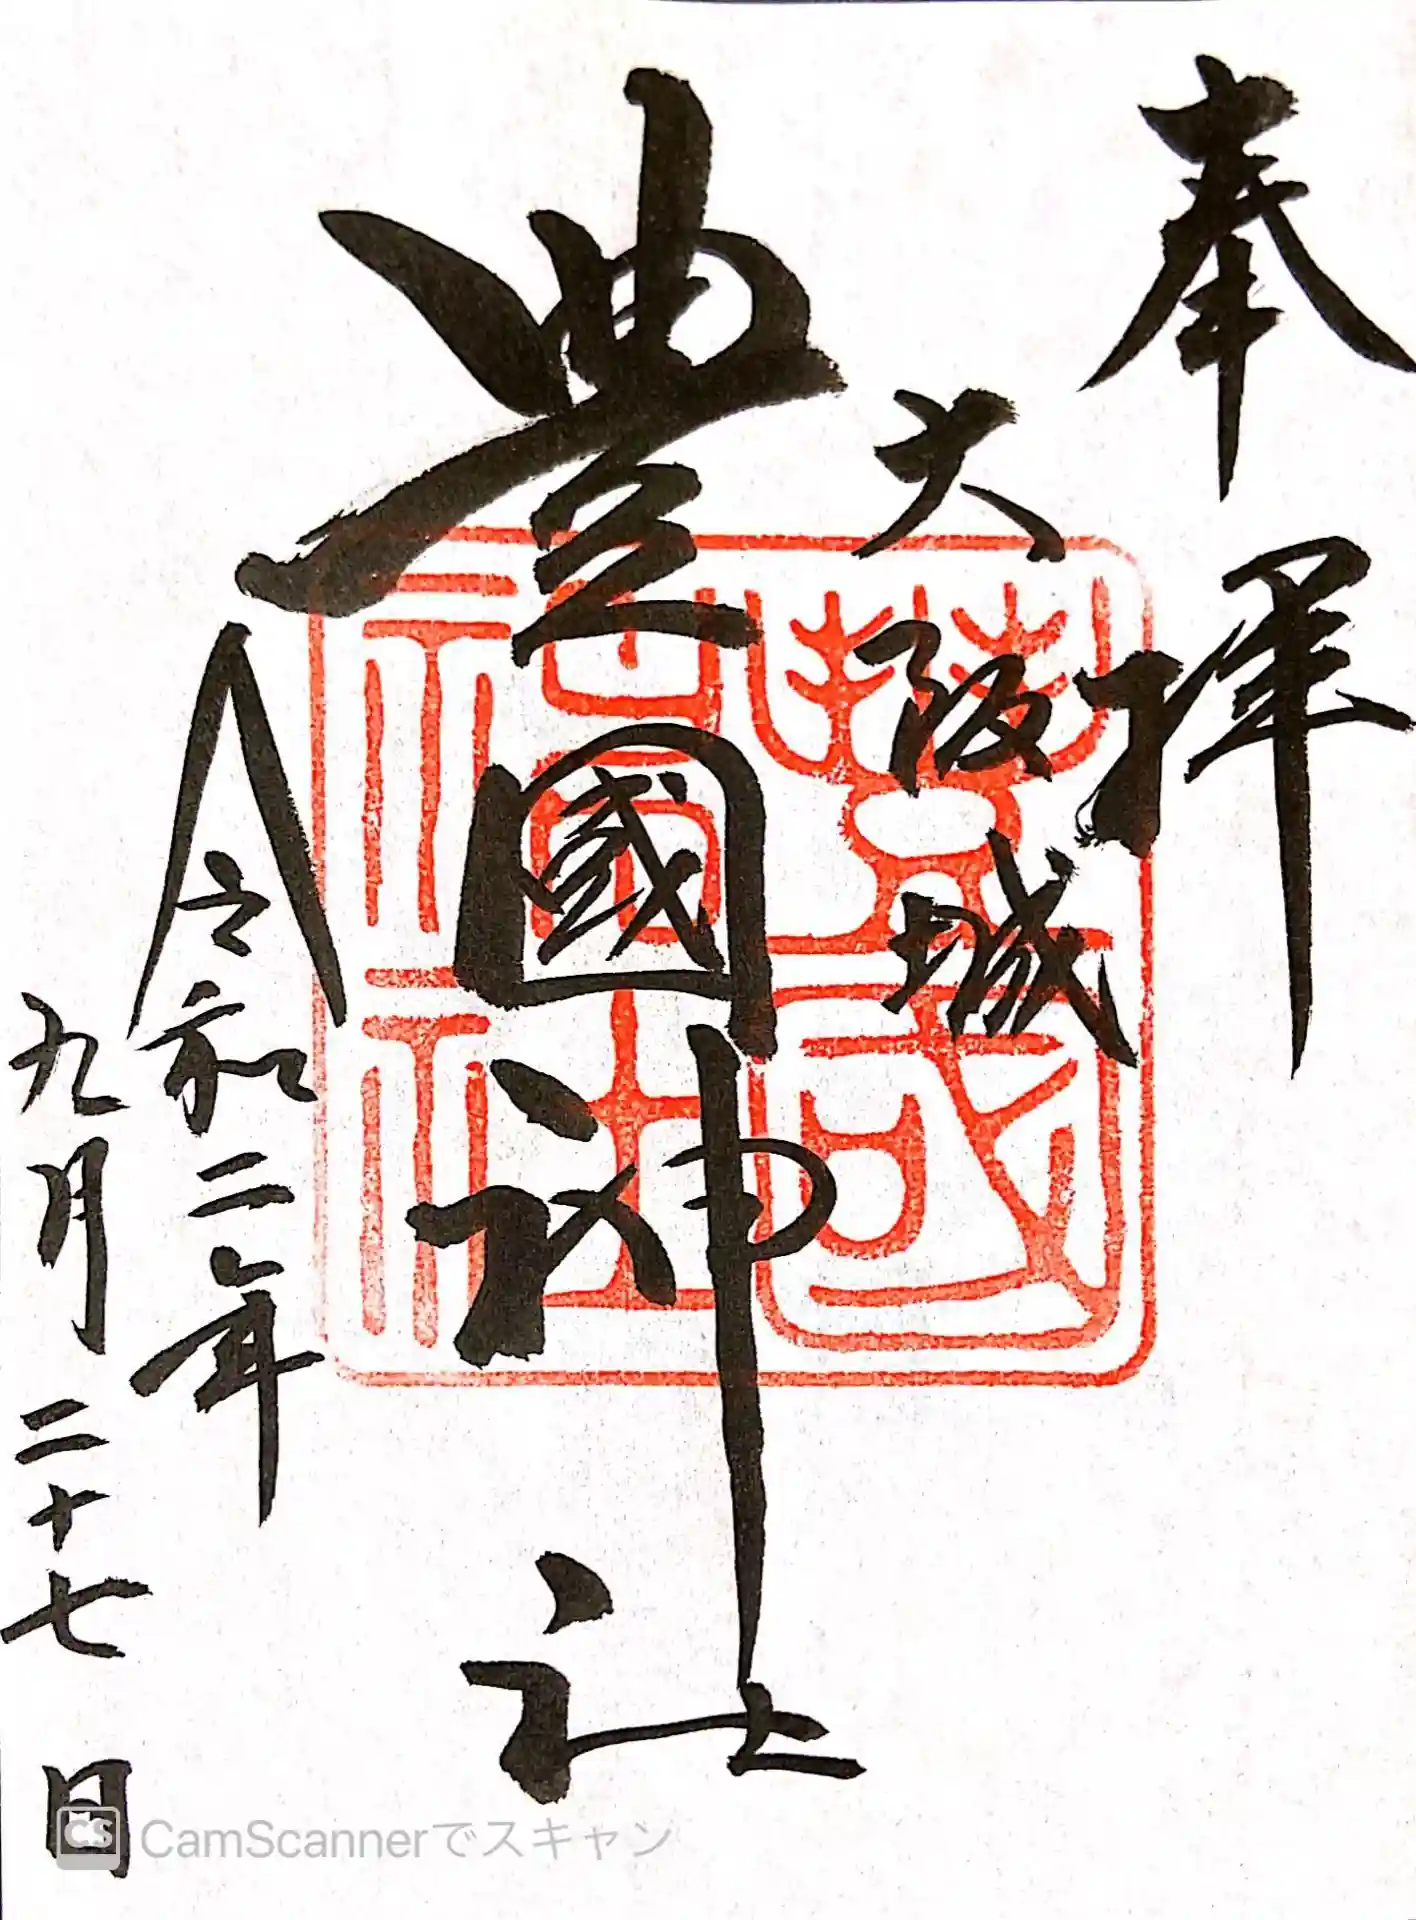 奉拝
大阪城
豊國神社
令和二年
九月二十七日
豊國神社
CS CamScannerでスキャン